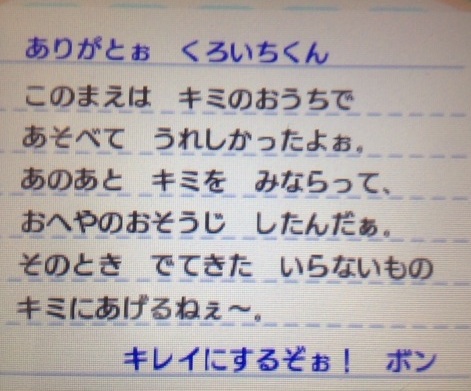 ありがとぉ　くろいちくん
このまえは　キミのおうちで
あそべて　うれしかったよぉ。
あのあと　キミを　みならって、
おへやのおそうじ　したんだぁ。
そのとき　でてきた　いらないもの
キミにあげるねぇ～。
キレイにするぞぉ！　ボン